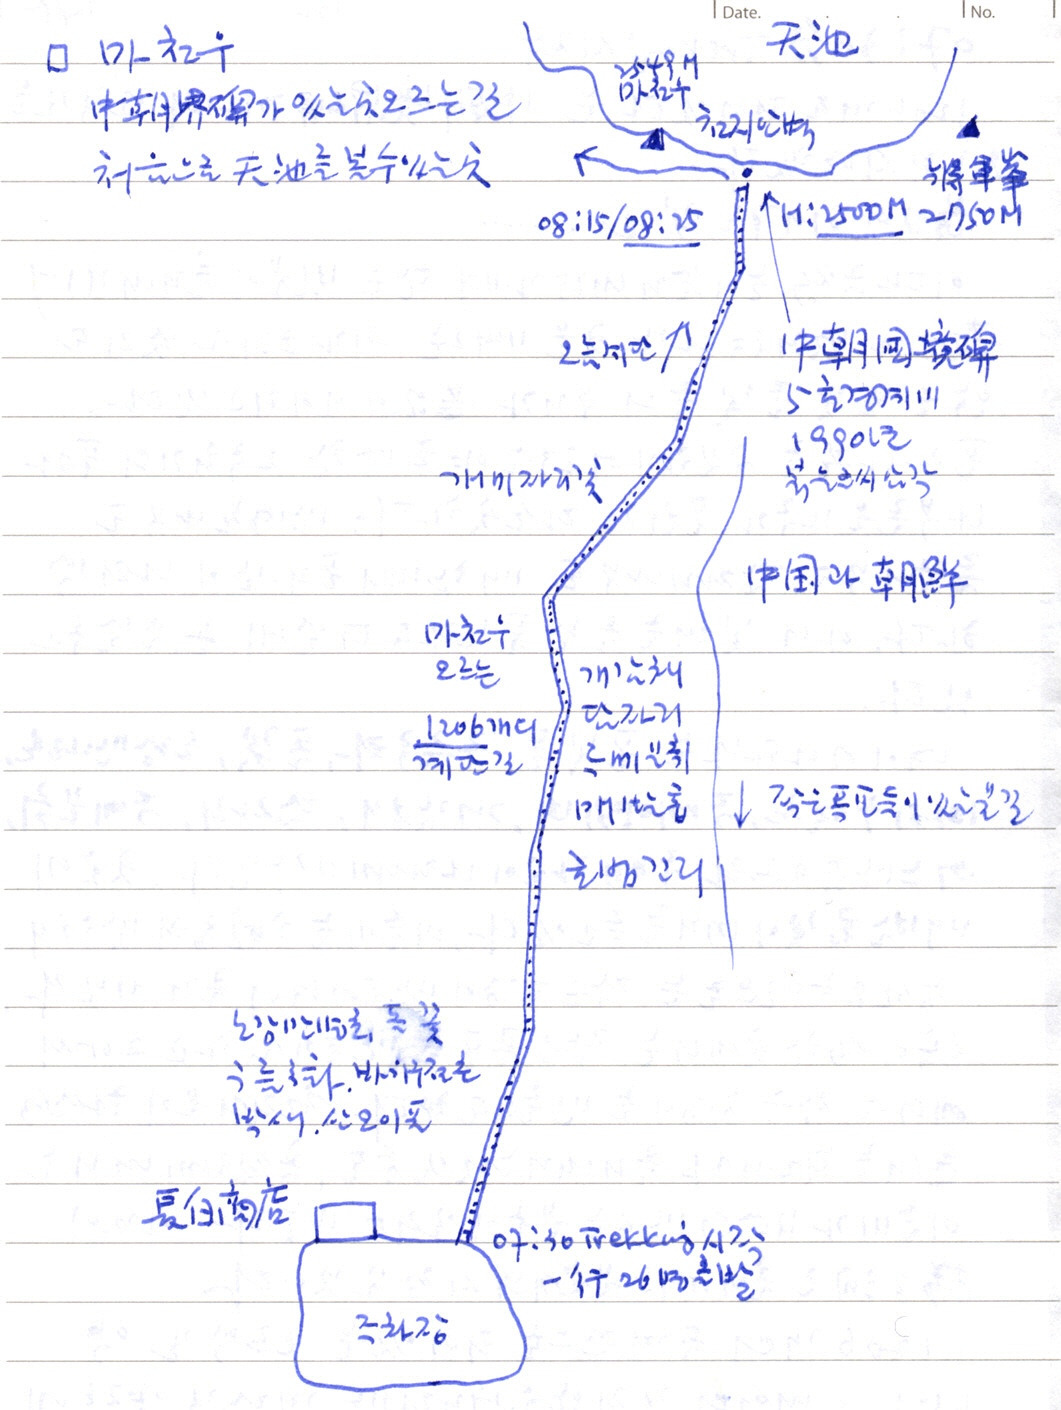 Date.
No.
□ 마천우
中朝界碑가 있는곳오르는길
처음으로 天池를 볼수있는곳
天池
2549M
마천우
천지안벽
将軍峯
2750M
H:2500M
08:15/08:25
오름계단
中朝国境碑
5호경계비
1990년
붉은글씨음각
개미자리꽃
中国과 朝鮮
마천우
오르는
1206개의
계단길
개감채
담자리
두메분취
매발톱
흰범꼬리
작은폭포들이있는물길
노랑만병초, 돌꽃
구름국화, 바위구절초
박새, 산오이풀
長白商店
07:30 Trekking 시작
일행 26명 출발
주차장